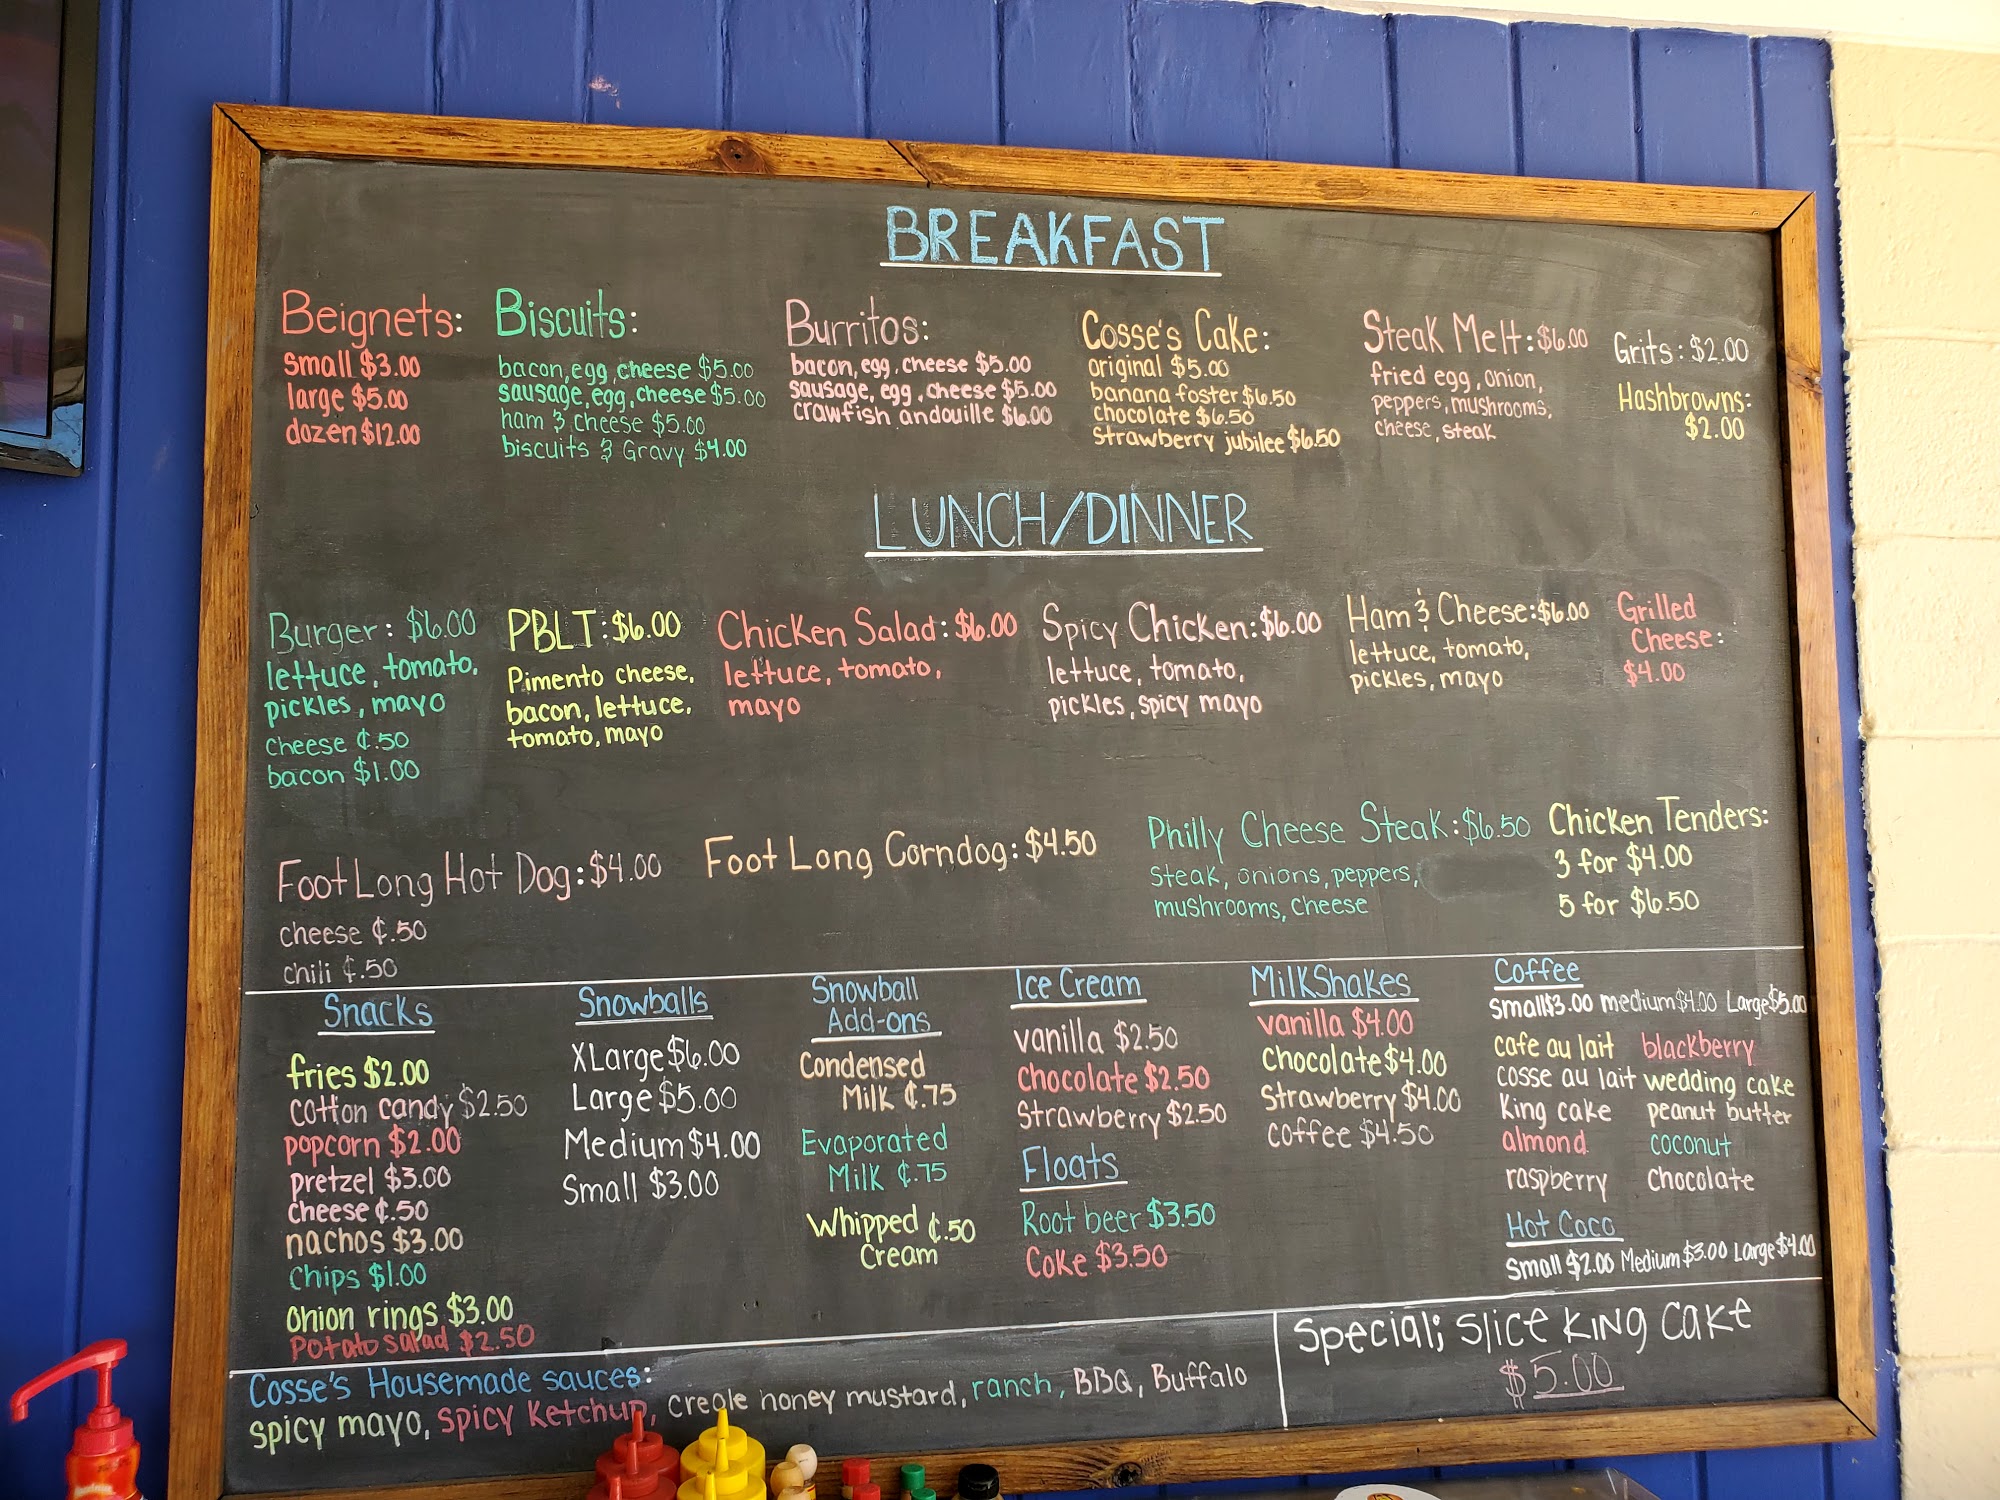 BREAKFAST
Beignets:
small $3.00
large $5.00
dozen $12.00
Biscuits:
bacon, egg, cheese $5.00
sausage, egg, cheese $5.00
ham & cheese $5.00
biscuits & Gravy $4.00
Burritos:
bacon, egg, cheese $5.00
sausage, egg, cheese $5.00
crawfish andouille $6.00
Cosse's Cake:
original $5.00
banana foster $6.50
chocolate $6.50
strawberry jubilee $6.50
Steak Melt: $6.00
fried egg, onion,
peppers, mushrooms,
cheese, steak
Grits: $2.00
Hashbrowns:
$2.00
LUNCH/DINNER
Burger: $6.00
lettuce, tomato,
pickles, mayo
cheese ¢.50
bacon $1.00
PBLT: $6.00
Pimento cheese,
bacon, lettuce,
tomato, mayo
Chicken Salad: $6.00
lettuce, tomato,
mayo
Spicy Chicken: $6.00
lettuce, tomato,
pickles, spicy mayo
Ham & Cheese: $6.00
lettuce, tomato,
pickles, mayo
Grilled
Cheese:
$4.00
Foot Long Hot Dog: $4.00
cheese ¢.50
chili ¢.50
Foot Long Corndog: $4.50
Philly Cheese Steak: $6.50
Steak, onions, peppers,
mushrooms, cheese
Chicken Tenders:
3 for $4.00
5 for $6.50
Snacks
fries $2.00
cotton candy $2.50
popcorn $2.00
pretzel $3.00
cheese ¢.50
nachos $3.00
chips $1.00
onion rings $3.00
Potato salad $2.50
Snowballs
XLarge $6.00
Large $5.00
Medium $4.00
Small $3.00
Snowball
Add-ons
Condensed
Milk ¢.75
Evaporated
Milk ¢.75
Whipped ¢.50
Cream
Ice Cream
vanilla $2.50
chocolate $2.50
Strawberry $2.50
Floats
Root beer $3.50
Coke $3.50
MilkShakes
vanilla $4.00
chocolate $4.00
Strawberry $4.00
coffee $4.50
Coffee
Small $3.00 medium $4.00 Large $5.00
cafe au lait blackberry
cosse au lait wedding cake
King cake peanut butter
almond coconut
raspberry chocolate
Hot Coco
Small $2.00 Medium $3.00 Large $4.00
Cosse's Housemade sauces:
spicy mayo, spicy Ketchup, creole honey mustard, ranch, BBQ, Buffalo
Special; Slice King Cake
$5.00